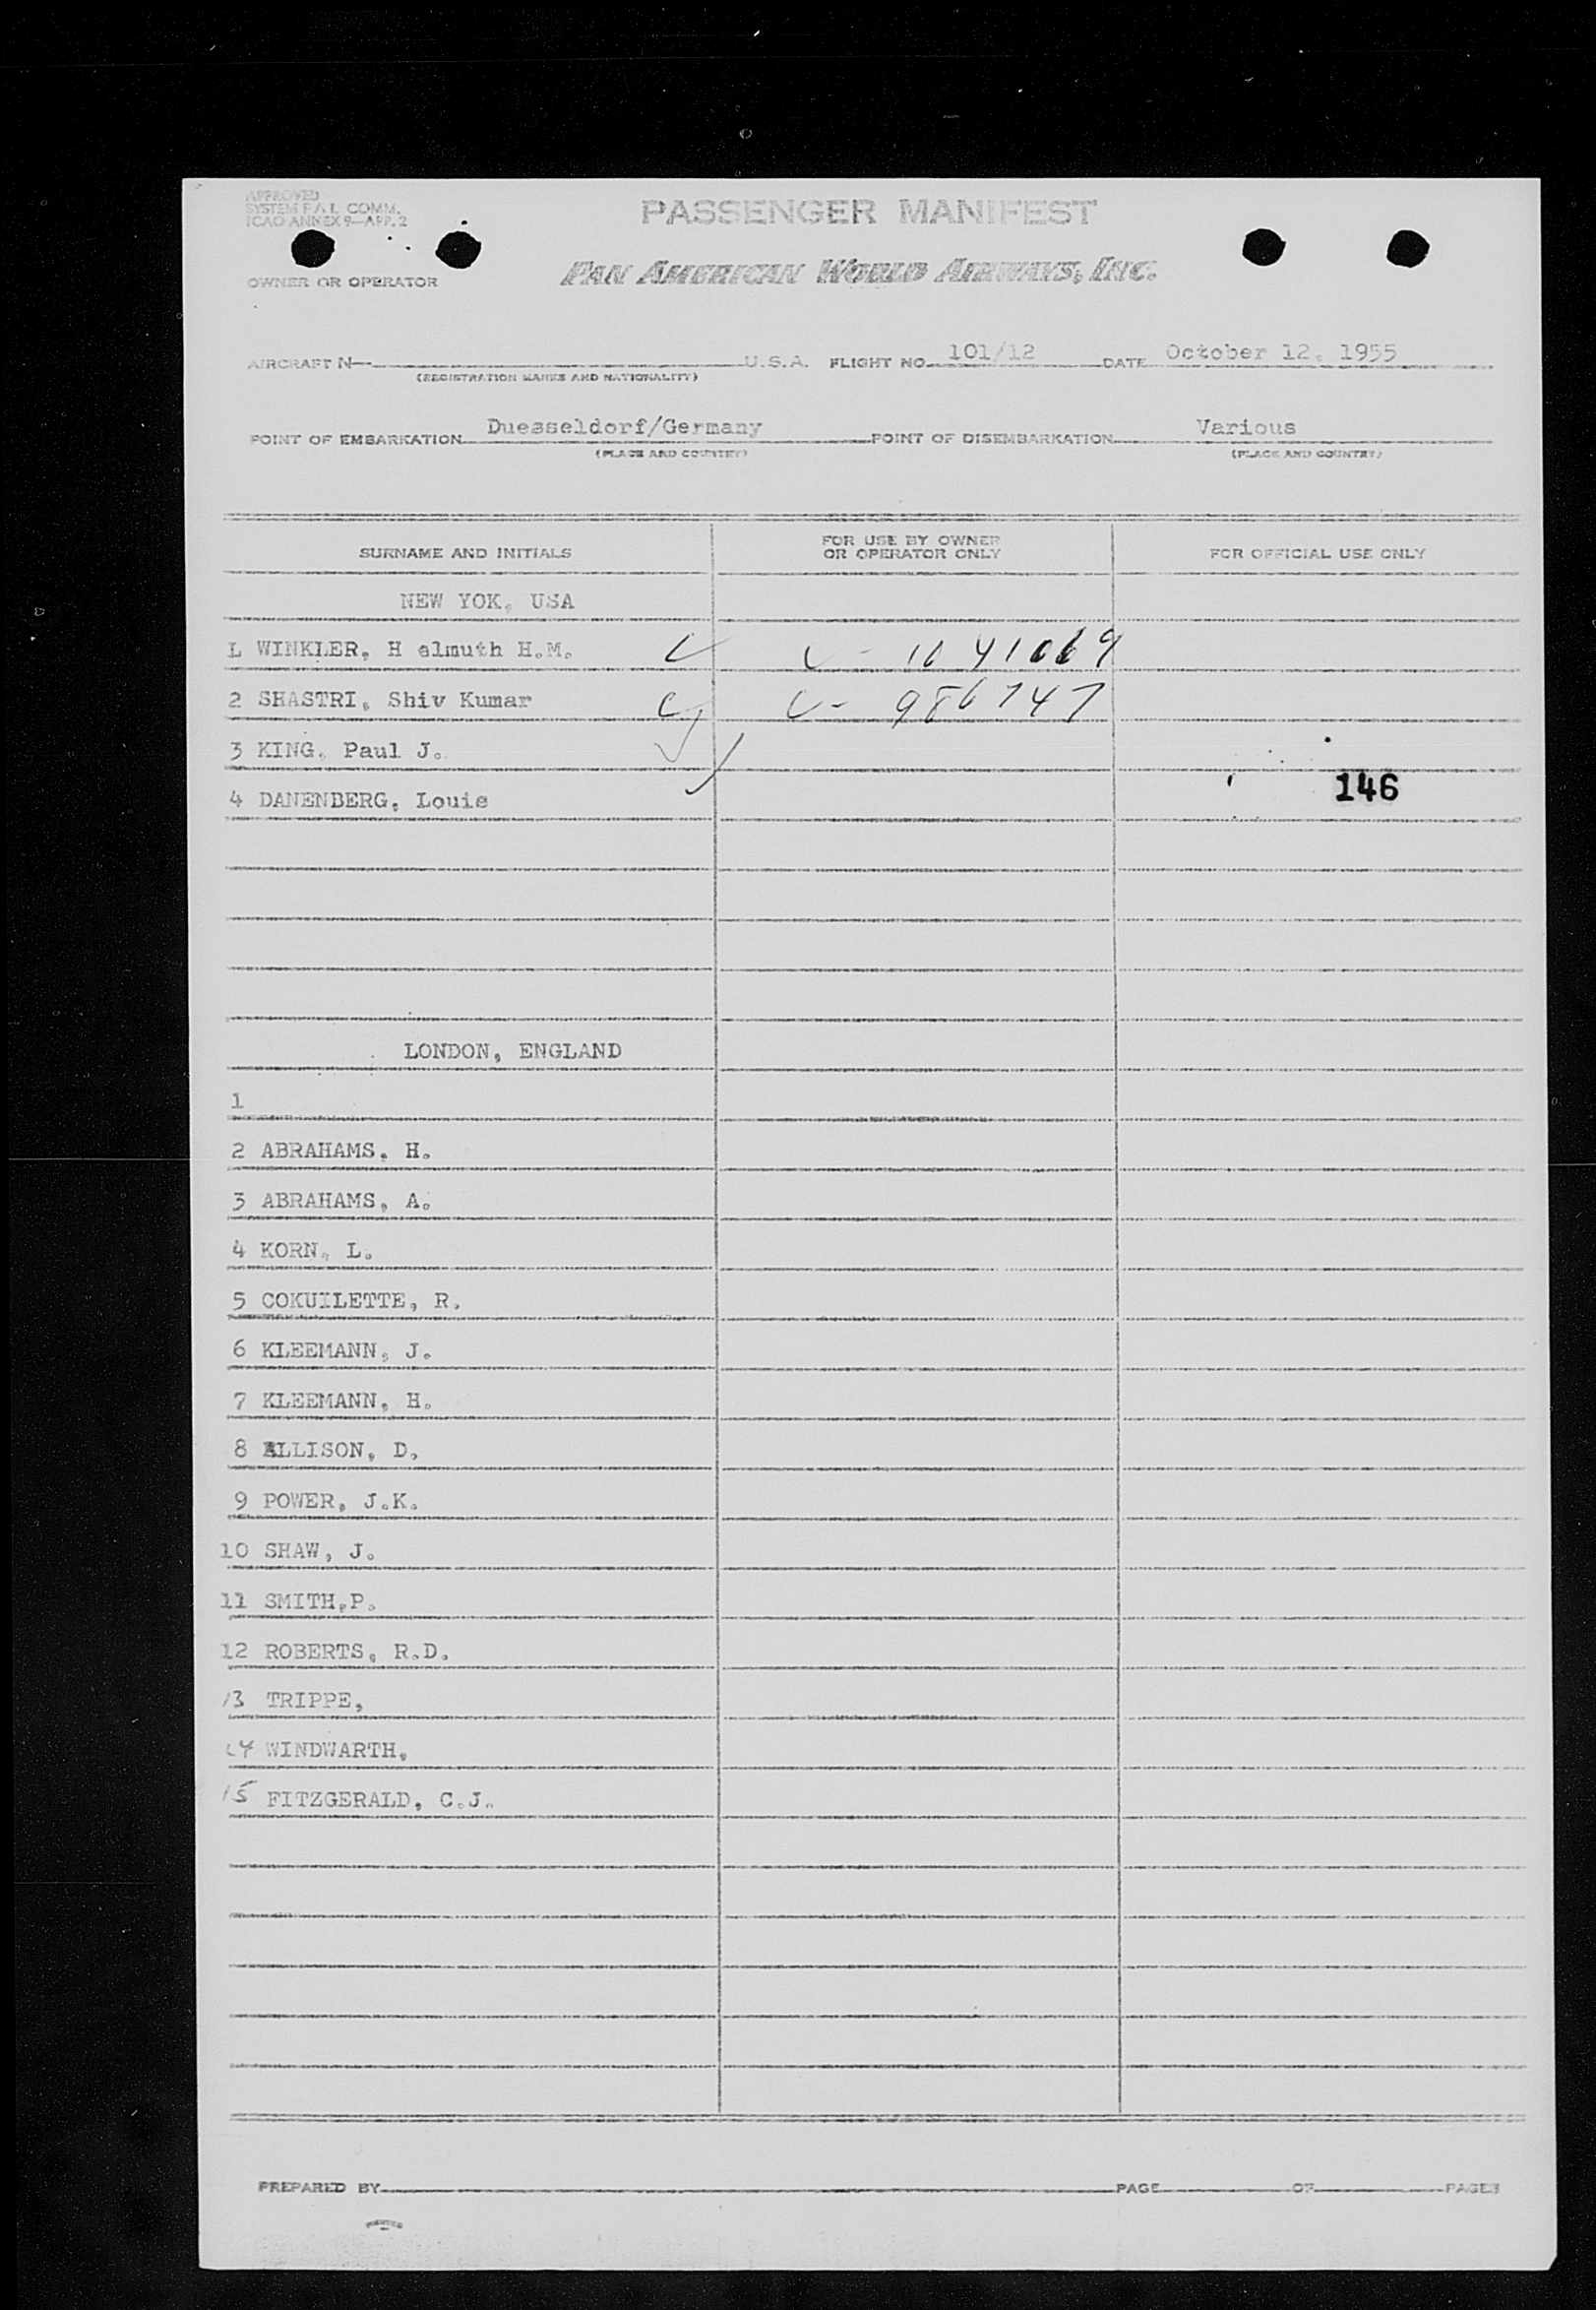 APPROVED
SYSTEM F.A.L. COMM.
ICAO ANNEX 9—APP. 2
PASSENGER MANIFEST
OWNER OR OPERATOR PAN AMERICAN WORLD AIRWAYS, INC.
AIRCRAFT N— U.S.A. FLIGHT NO. 101/12 DATE October 12, 1955
(REGISTRATION MARKS AND NATIONALITY)
POINT OF EMBARKATION Duesseldorf/Germany POINT OF DISEMBARKATION Various
(PLACE AND COUNTRY) (PLACE AND COUNTRY)
SURNAME AND INITIALS FOR USE BY OWNER OR OPERATOR ONLY FOR OFFICIAL USE ONLY
NEW YOK, USA
1 WINKLER, H elmuth H.M. V-
2 SHASTRI, Shiv Kumar V- 986747
3 KING, Paul J.
4 DANENBERG, Louis 146
LONDON, ENGLAND
1
2 ABRAHAMS, H.
3 ABRAHAMS, A.
4 KORN, L.
5 COKUILETTE, R.
6 KLEEMANN, J.
7 KLEEMANN, H.
8 ALLISON, D,
9 POWER, J.K.
10 SHAW, J.
11 SMITH,P.
12 ROBERTS, R.D.
13 TRIPPE,
14 WINDWARTH,
15 FITZGERALD, C.J.
PREPARED BY PAGE OF PAGES